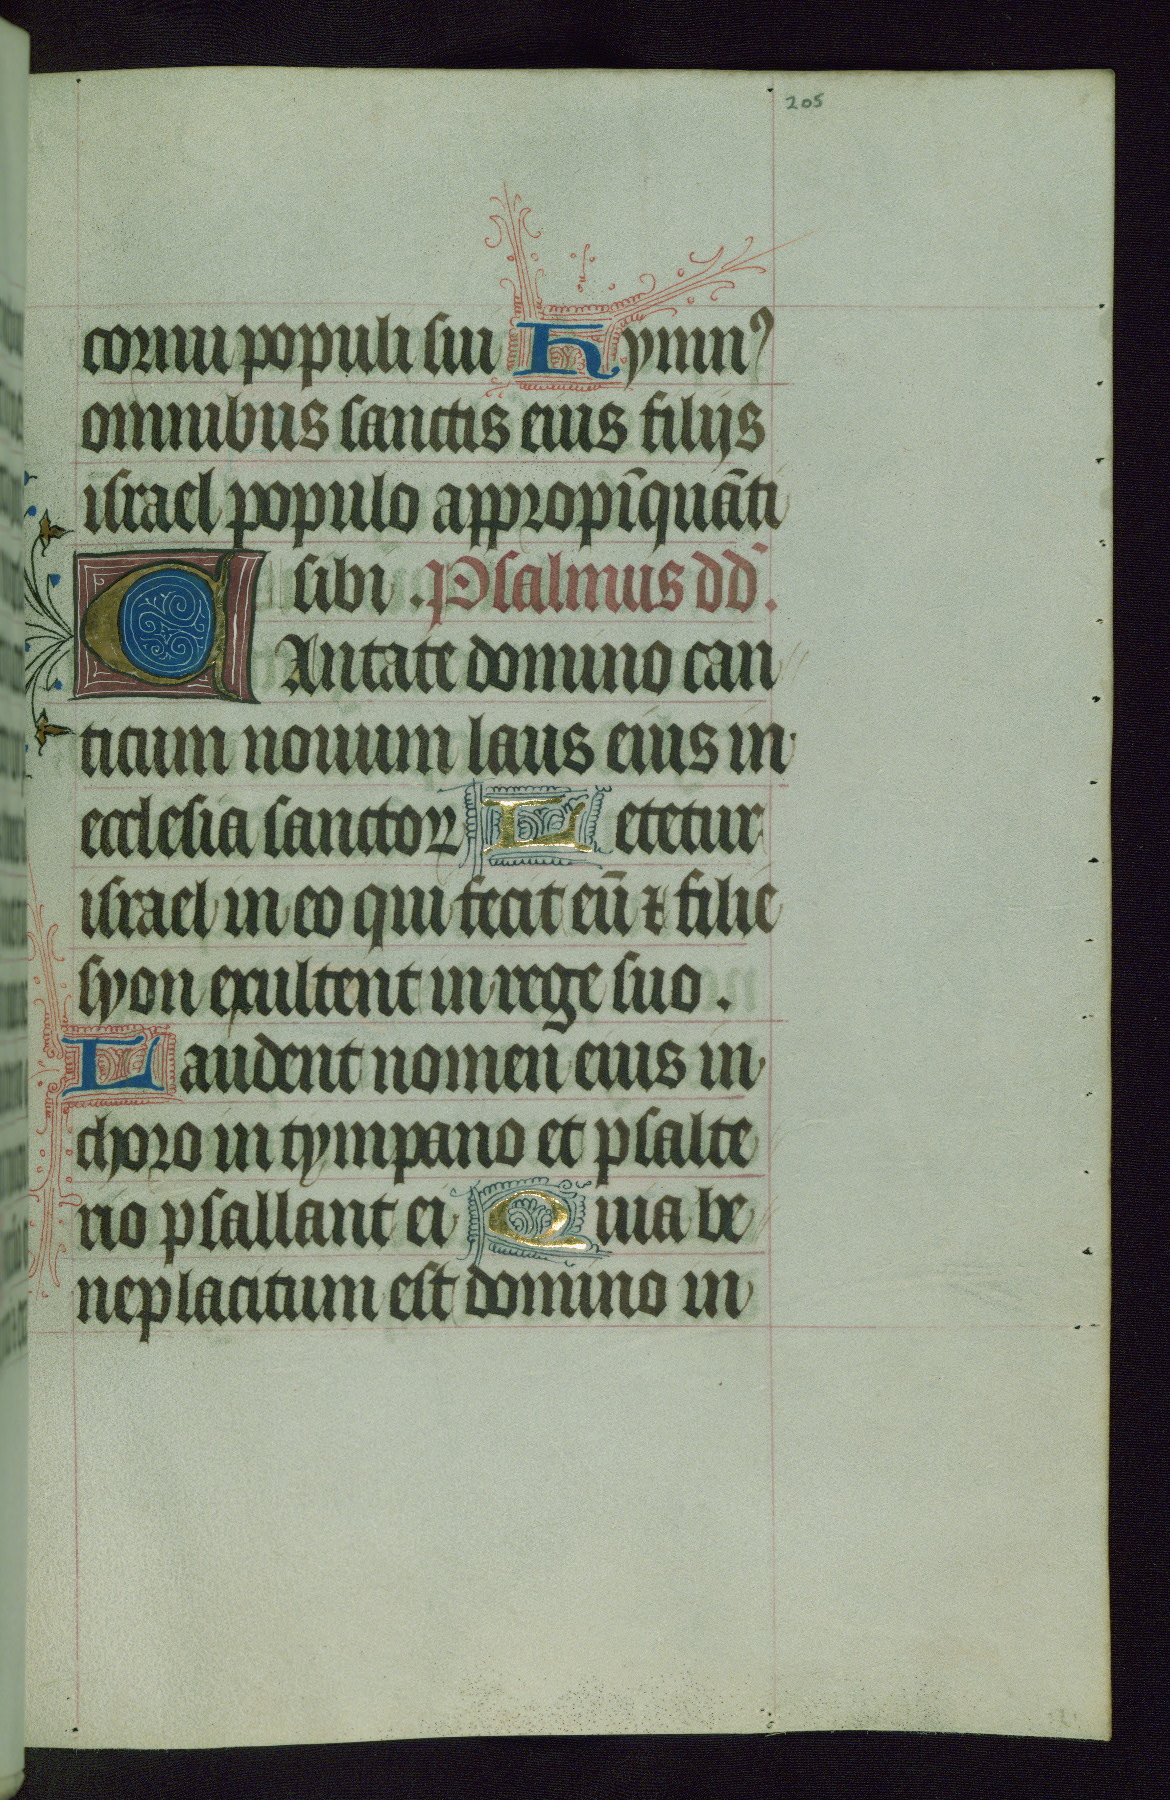 205
cornu populi sui Hymnꝰ
omnibus sanctis eius filijs
israel populo appropīquāti
sibi . Psalmus dd̄.
CAntate domino can
ticum nouum laus eius in
ecclesia sanctoꝝ Letetur
israel in eo qui fecit eū ⁊ filie
syon exultent in rege suo .
Laudent nomen eius in
choro in tympano et psalte
rio psallant ei Quia be
neplacitum est domino in